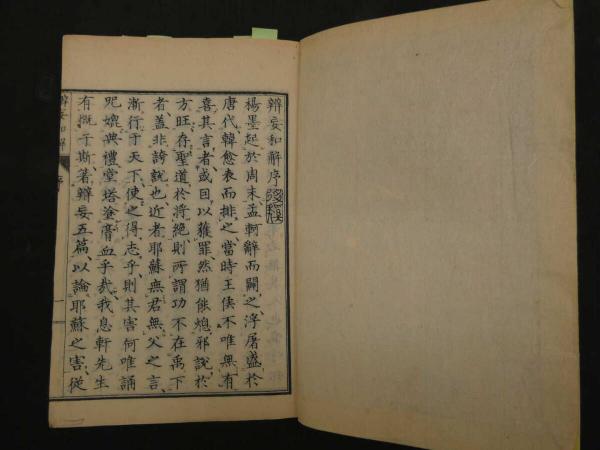 辯妄和解序
楊墨起於周末孟軻辭而闢之浮屠盛於
唐代韓愈表而排之當時王侯不唯無有
喜其言者或因以獲罪然猶能熄邪說於
方旺存聖道於將絕則所謂功不在禹下
者蓋非誇說也近者耶蘇無君無父之言
漸行于天下使之得志乎則其害何唯誦
咒燒典禮堂塔塗膏血乎哉我息軒先生
有慨于斯著辯妄五篇以論耶蘇之害從
辯妄和解
序
一